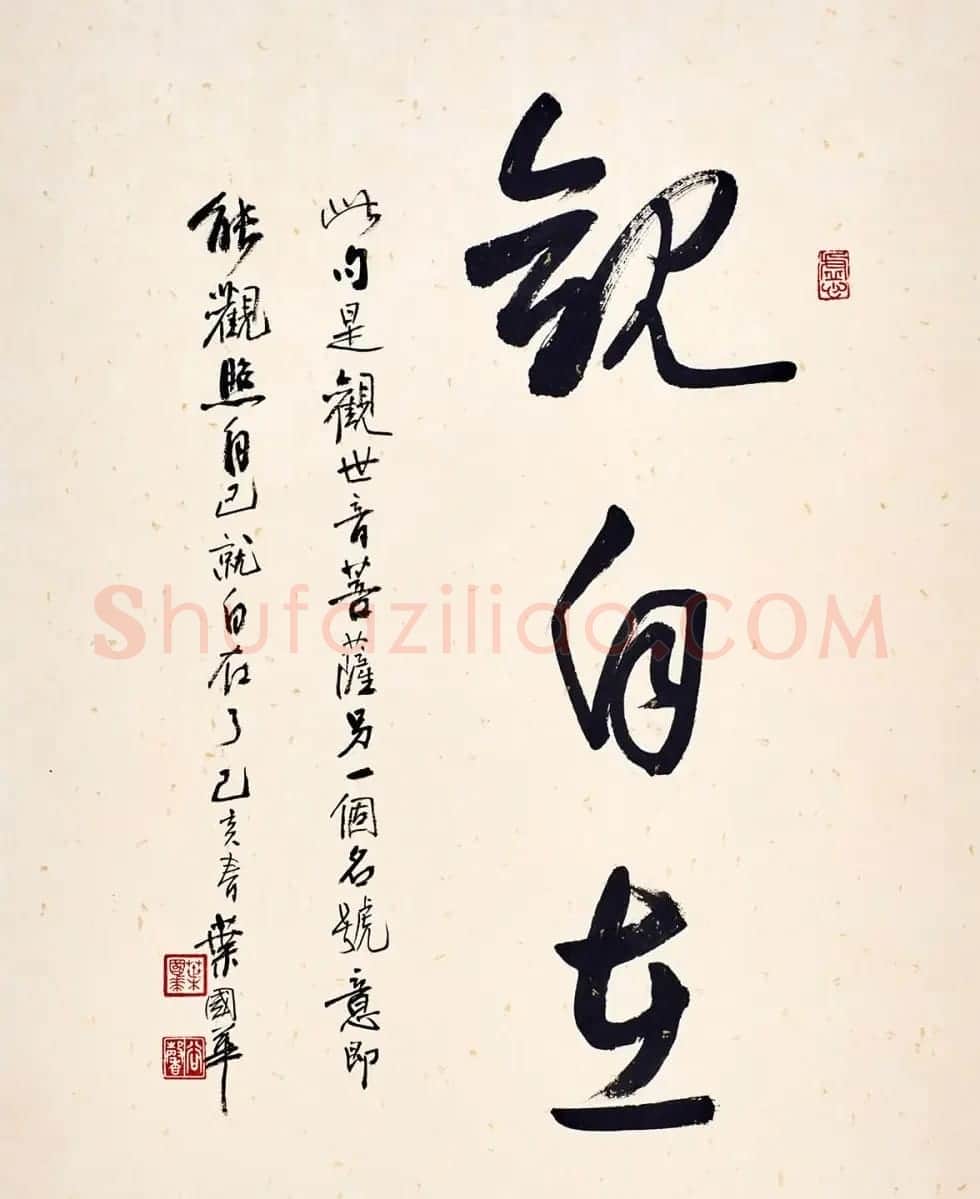 觀自在
此句是觀世音菩薩另一個名號意即
能觀照自己就自在了己亥春葉國華
葉國華
Shufaziliao.COM